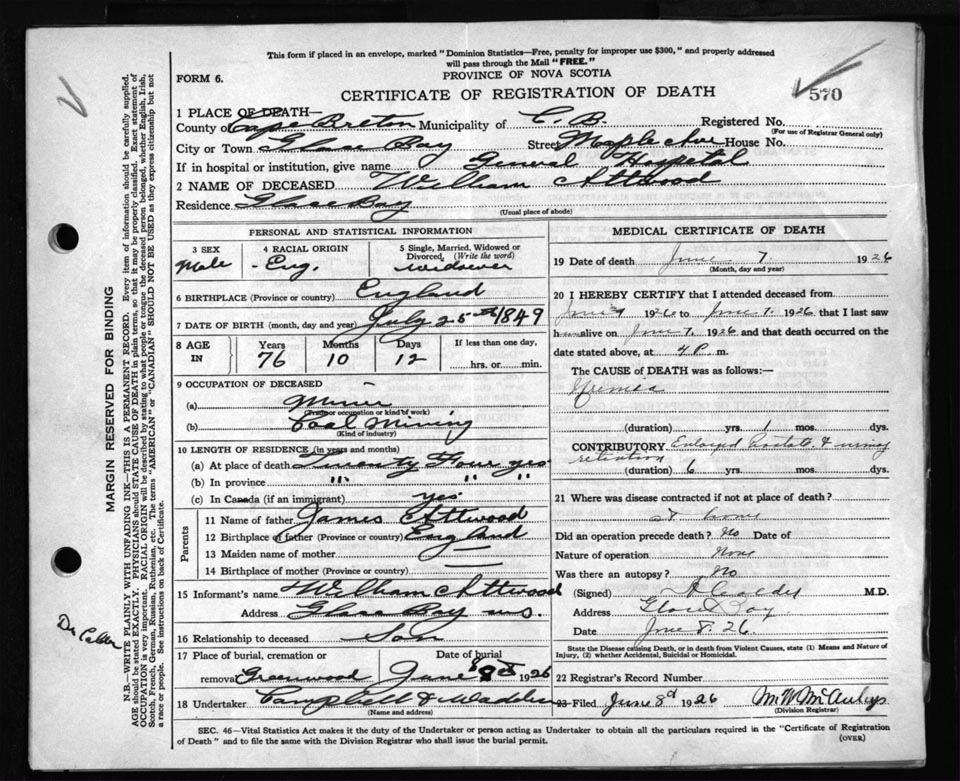 This form if placed in an envelope, marked "Dominion Statistics—Free, penalty for improper use $300," and properly addressed
will pass through the Mail "FREE."
PROVINCE OF NOVA SCOTIA
FORM 6.
CERTIFICATE OF REGISTRATION OF DEATH
570
1 PLACE OF DEATH—
County of Cape Breton Municipality of C. B. Registered No.
(For use of Registrar General only)
City or Town Glace Bay Street Maple Ave House No.
If in hospital or institution, give name General Hospital
2 NAME OF DECEASED William Attwood
Residence Glace Bay
(Usual place of abode)
PERSONAL AND STATISTICAL INFORMATION
3 SEX 4 RACIAL ORIGIN 5 Single, Married, Widowed or
Divorced. (Write the word)
Male - Eng. widower
6 BIRTHPLACE (Province or country) England
7 DATE OF BIRTH (month, day and year) July 25th 1849
8 AGE Years Months Days If less than one day,
IN 76 10 12 hrs. or min.
9 OCCUPATION OF DECEASED
(a) Miner
(Trade or occupation or kind of work)
(b) Coal Mining
(Kind of industry)
10 LENGTH OF RESIDENCE (in years and months)
(a) At place of death Twenty Four yrs
(b) In province " " "
(c) In Canada (if an immigrant) yes
Parents
11 Name of father James Attwood
12 Birthplace of father (Province or country) England
13 Maiden name of mother —
14 Birthplace of mother (Province or country) —
15 Informant's name William Attwood
Address Glace Bay NS.
16 Relationship to deceased Son
17 Place of burial, cremation or Date of burial
removal Greenwood June 8th 1926
18 Undertaker Campbell &
(Name and address)
MEDICAL CERTIFICATE OF DEATH
19 Date of death June 7. 1926
(Month, day and year)
20 I HEREBY CERTIFY that I attended deceased from
June 1926 to June 7. 1926 that I last saw
h alive on June 7, 1926 and that death occurred on
date stated above, at 4 P. m.
The CAUSE of DEATH was as follows:—
Uremia
(duration) yrs. 1 mos. dys.
CONTRIBUTORY Enlarged Prostate & urinary
retention
(duration) 6 yrs. mos. dys.
21 Where was disease contracted if not at place of death?
At home
Did an operation precede death? No Date of
Nature of operation None
Was there an autopsy? No
(Signed) A Calder M.D.
Address Glace Bay
Date June 8. 26
State the Disease causing Death, or in death from Violent Causes, state (1) Means and Nature of
Injury, (2) whether Accidental, Suicidal or Homicidal.
22 Registrar's Record Number
23 Filed June 8th 1926 M. W. McAuleys
(Division Registrar)
SEC. 46—Vital Statistics Act makes it the duty of the Undertaker or person acting as Undertaker to obtain all the particulars required in the "Certificate of Registration
of Death" and to file the same with the Division Registrar who shall issue the burial permit.
(OVER)
MARGIN RESERVED FOR BINDING
N.B.—WRITE PLAINLY WITH UNFADING INK—THIS IS A PERMANENT RECORD. Every item of information should be carefully supplied.
AGE should be stated EXACTLY. PHYSICIANS should STATE CAUSE OF DEATH in plain terms, so that it may be properly classified. Exact statement of
OCCUPATION is very important. RACIAL ORIGIN will be described by stating to what people or tongue the deceased person belonged, whether English, Irish,
Scotch, French, German, Russian, Ruthenian, etc. The terms "AMERICAN" or "CANADIAN" SHOULD NOT BE USED as they express citizenship but not
a race or people. See instructions on back of Certificate.
Dr Calder